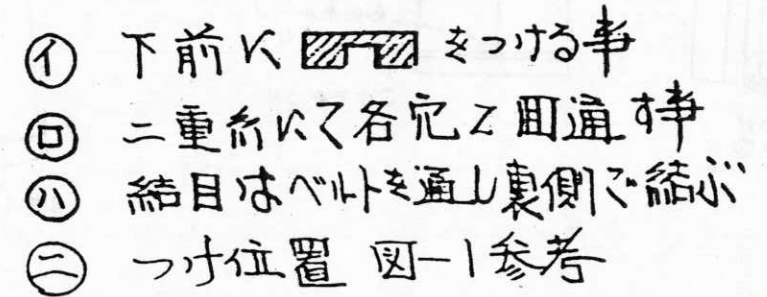 ㋑ 下前に をつける事
㋺ 二重糸にて各穴2回通す事
㋩ 結目はベルトを通し裏側で結ぶ
㊁ つけ位置 図-1参考